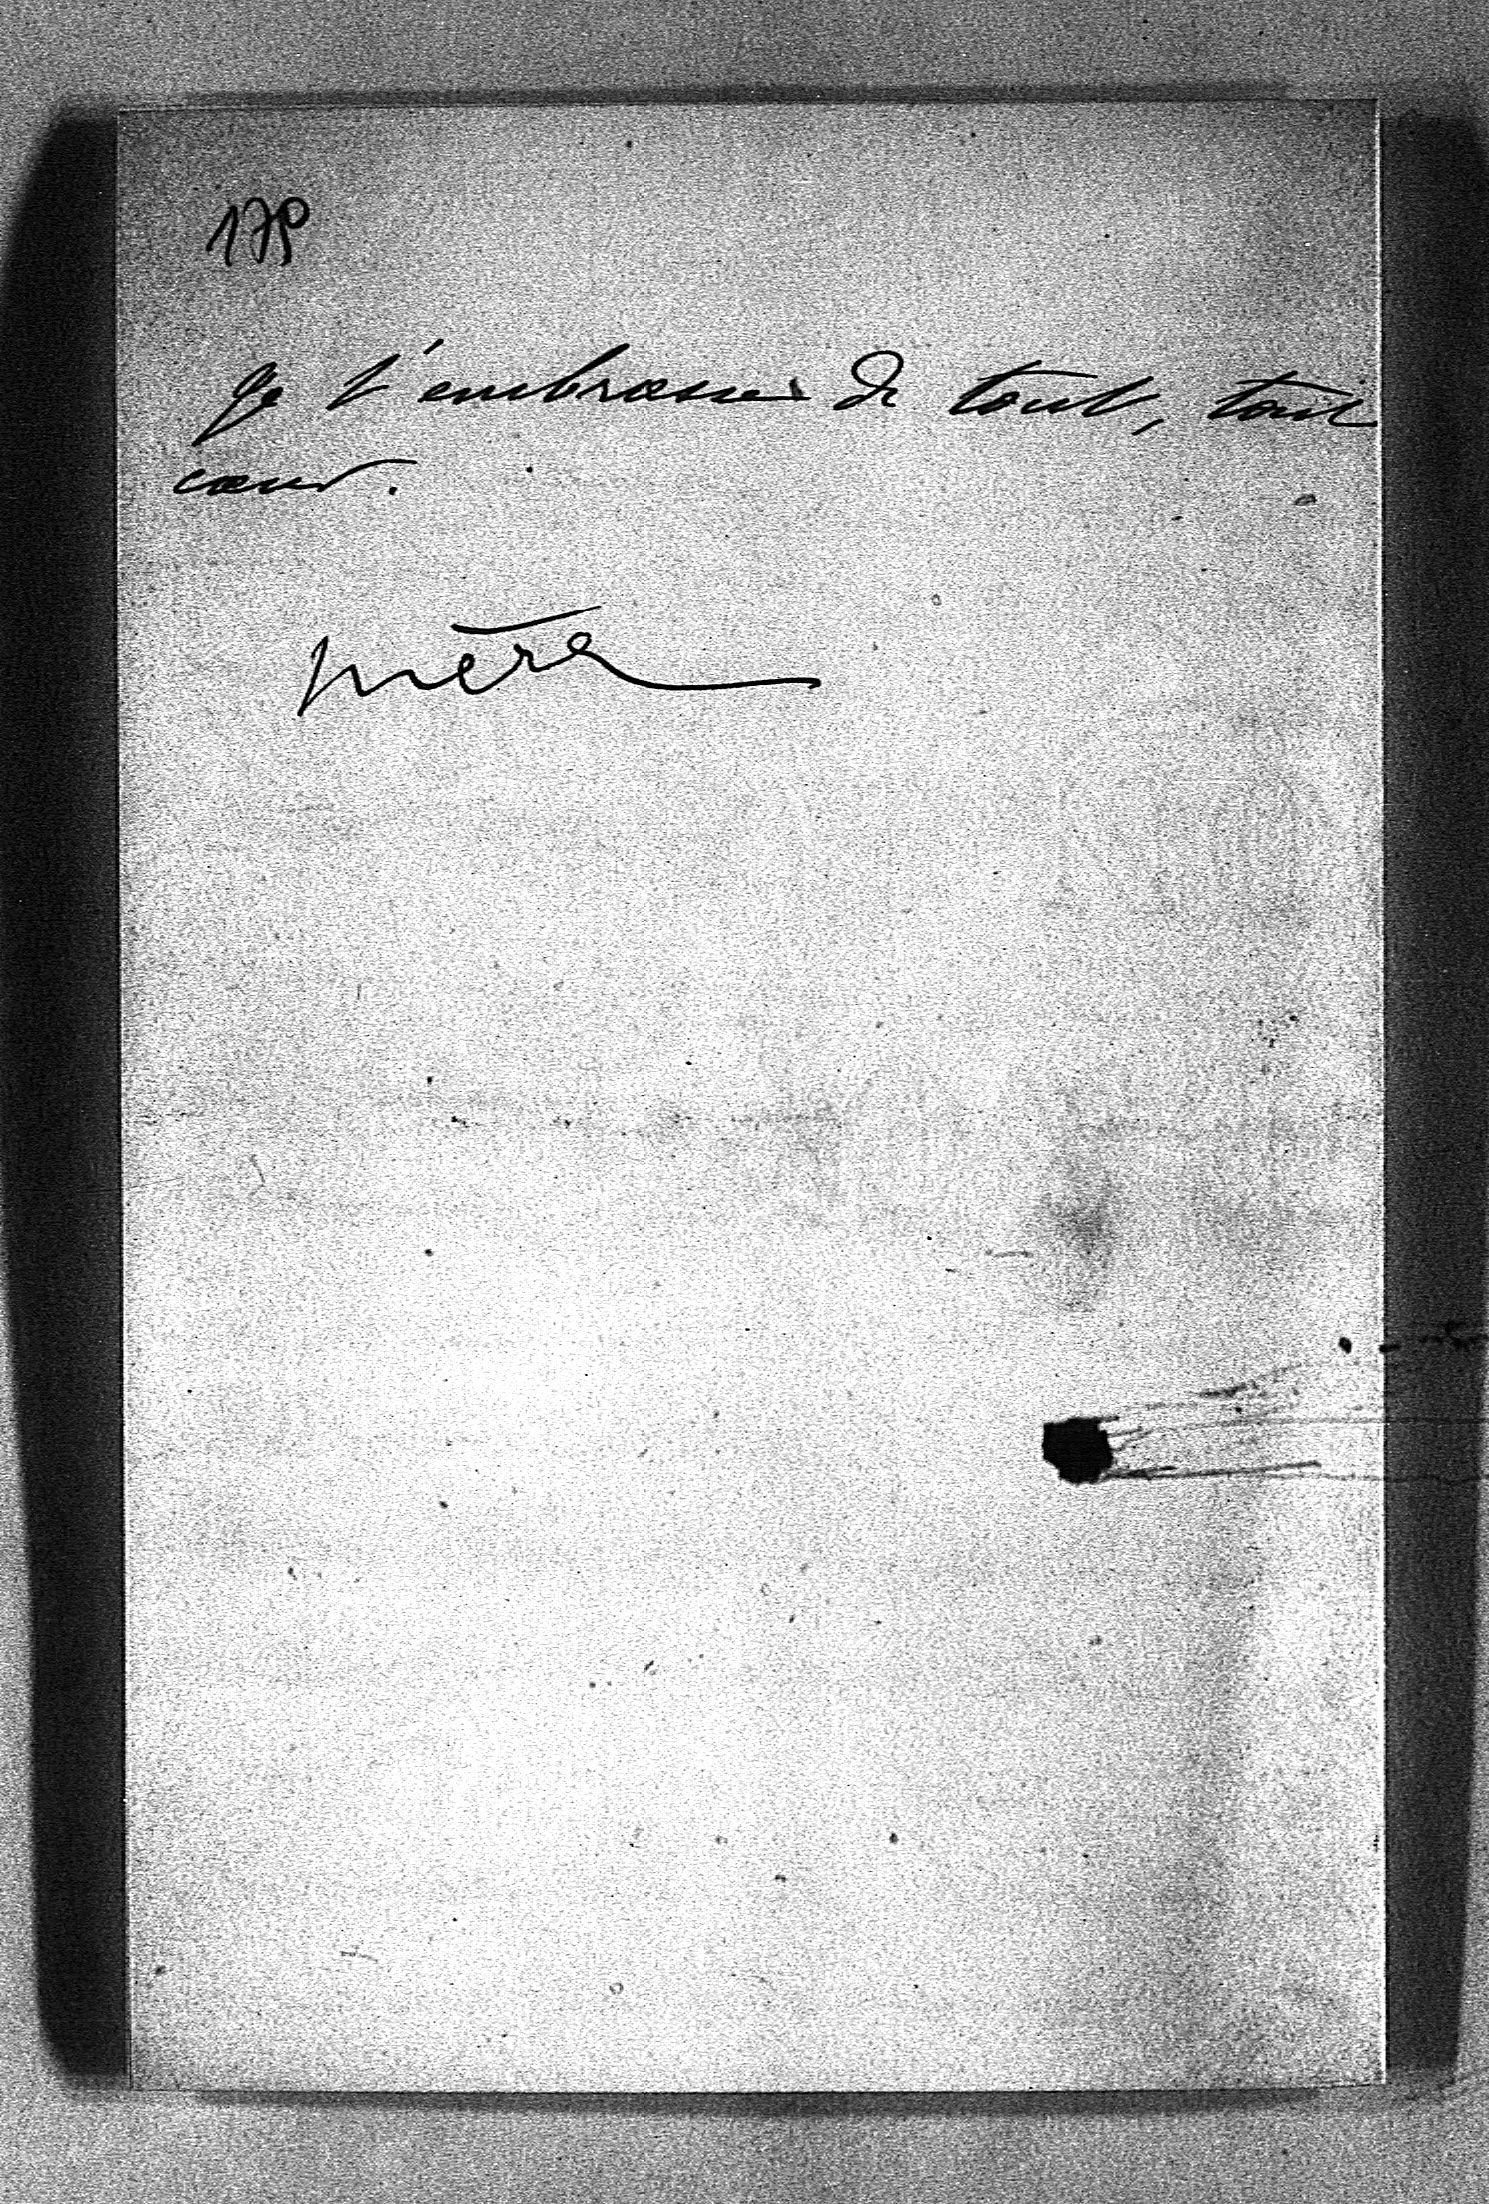 179
Je t'embrasse de tout, tout
cœur.
mère